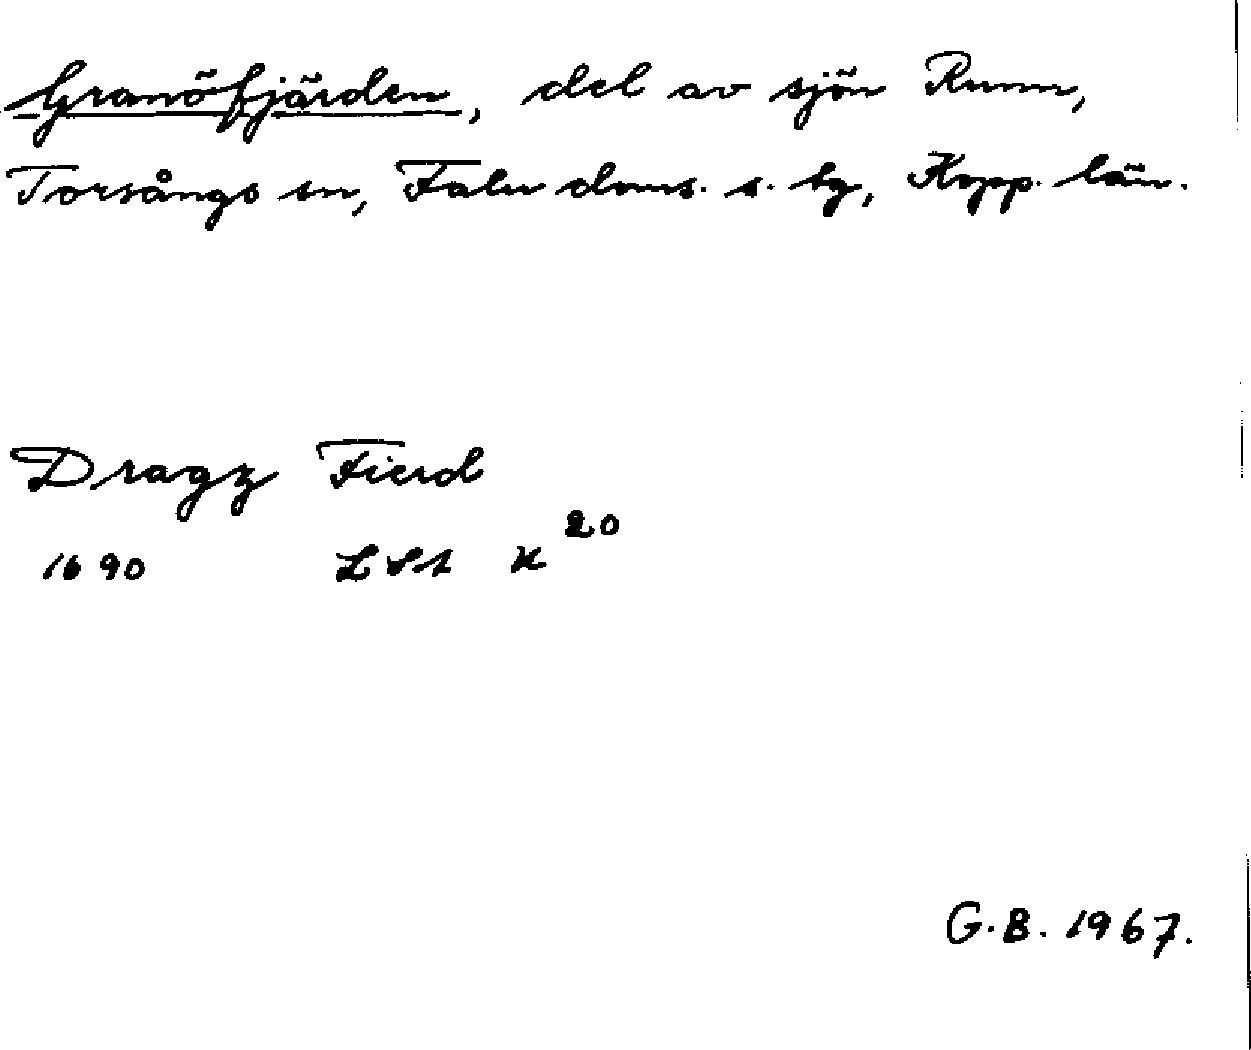 Granöfjärden, del av sjön Runn,
Torsångs sn, Falu doms. s. tg, Kopp. län.
Dragz Fierd
1690 LSt X 20
G.B. 1967.